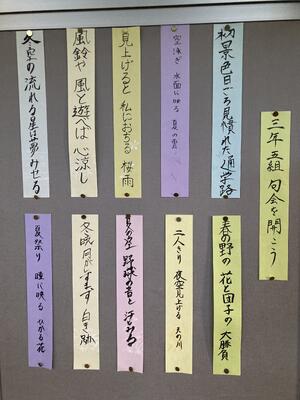 三年五組 句会を開こう
景色日ごろ見慣れた通学路
空泳ぎ 水面に映る 夏の雲
見上げると 私におちる 桜雨
風鈴や 風と遊べば 心涼し
冬空の流れる星は夢みせる
春の野の 花と団子の 大勝負
二人きり 夜空見上げる 天の川
夏の空 野球の音と 汗
冬晩 何が 白き跡
夏祭り 瞳に映る ひかる花